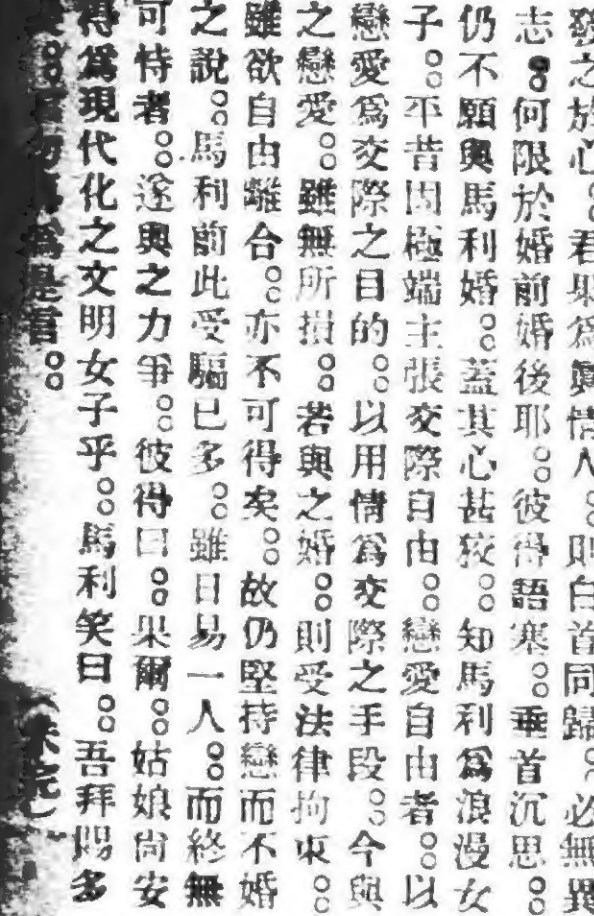 發之於心。君果爲眞情人。則白首同歸。必無異
志。何限於婚前婚後耶。彼得語塞。垂首沉思。
仍不願與馬利婚。蓋其心甚狡。知馬利爲浪漫女
子。平昔固極端主張交際自由。戀愛自由者。以
戀愛爲交際之目的。以用情爲交際之手段。今與
之戀愛。雖無所損。若與之婚。則受法律拘束。
雖欲自由離合。亦不可得矣。故仍堅持戀而不婚
之說。馬利前此受騙已多。雖日易一人。而終無
可恃者。遂與之力爭。彼得曰。果爾。姑娘尙安
得爲現代化之文明女子乎。馬利笑曰。吾拜賜多
矣。勿爲是言。
（未完）